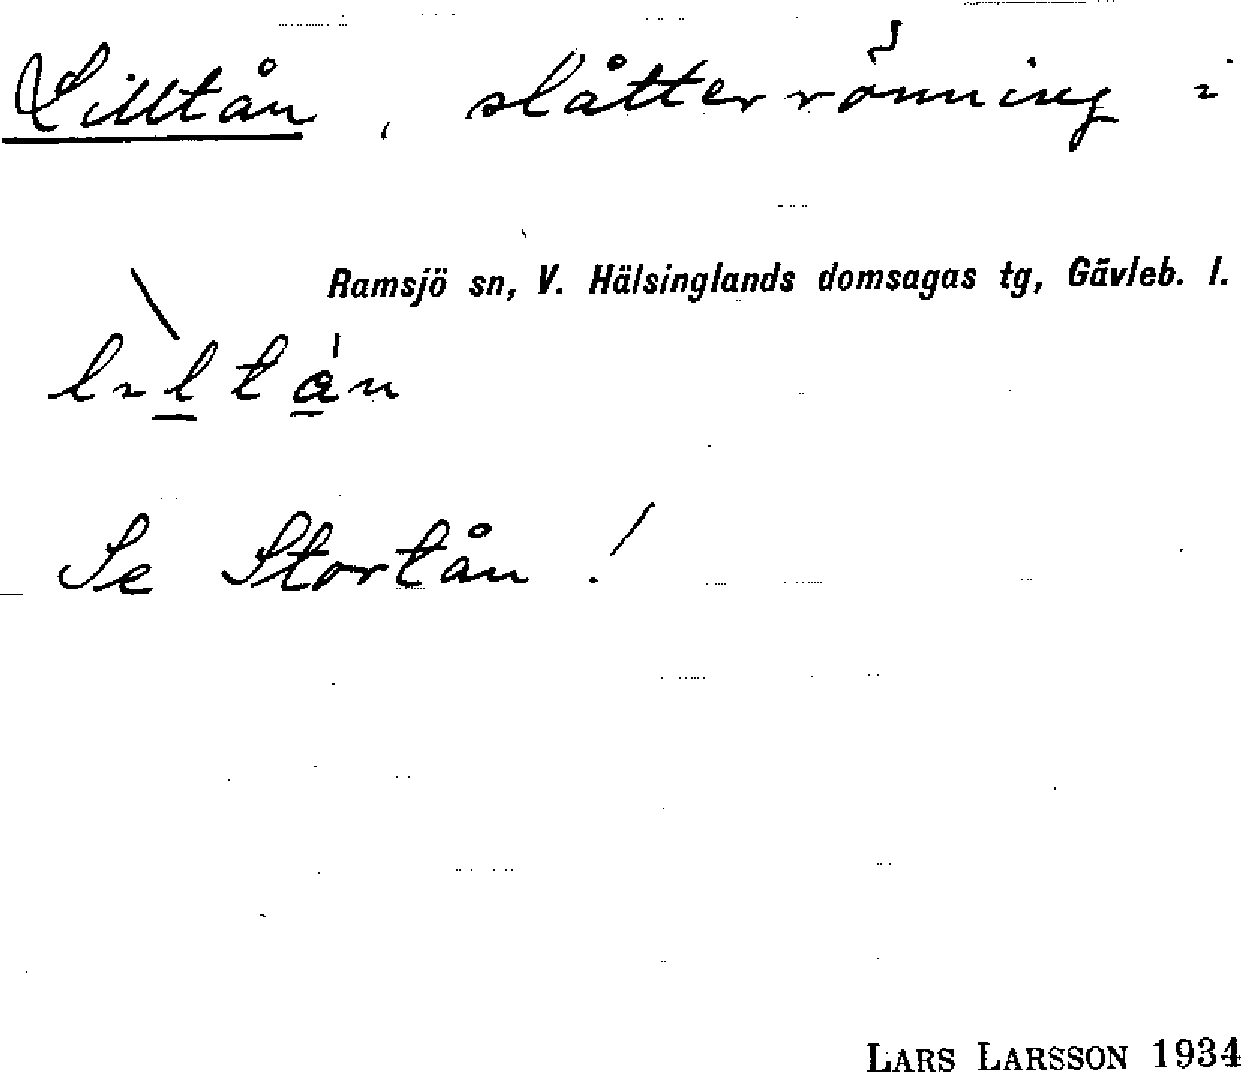 Lilltån, slåtterrönning i
Ramsjö sn, V. Hälsinglands domsagas tg, Gävleb. l.
Se Stortån!
LARS LARSSON 1934